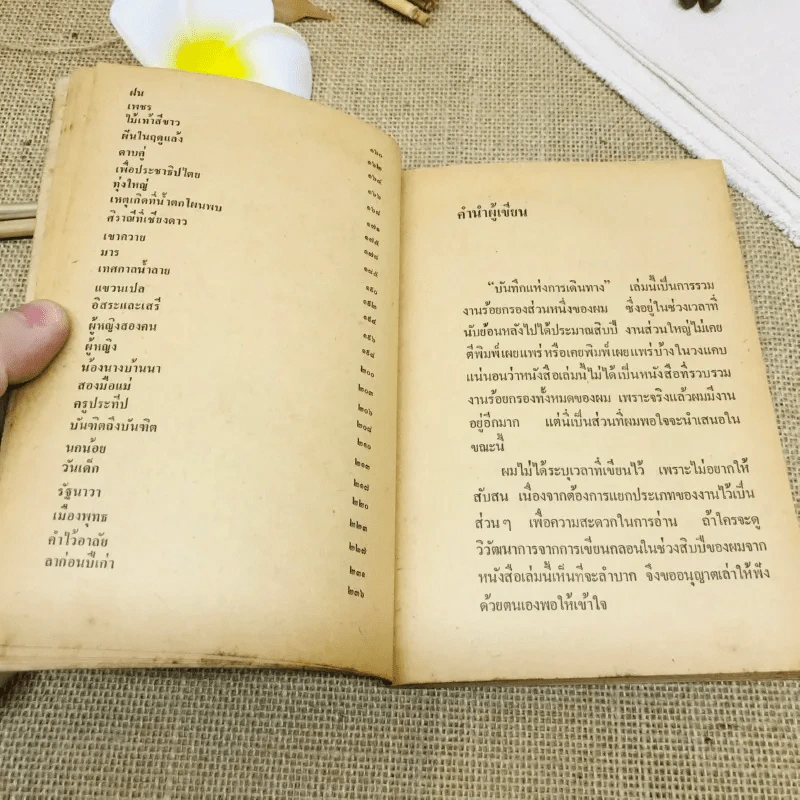 ฝน ๑๖๐
เพชร ๑๖๒
ไม้เท้าสีขาว ๑๖๔
ผืนในฤดูแล้ง ๑๖๖
ดาบคู่ ๑๖๘
เพื่อประชาธิปไตย ๑๗๑
ทุ่งใหญ่ ๑๗๕
เหตุเกิดที่น้ำตกไผนพบ ๑๗๘
ศิราณีที่เชียงดาว ๑๘๕
เขาควาย ๑๙๐
มาร ๑๙๒
เทศกาลน้ำลาย ๑๙๔
แขวนเปล ๑๙๖
อิสระและเสรี ๑๙๘
ผู้หญิงสองคน ๒๐๐
ผู้หญิง ๒๐๓
น้องนางบ้านนา ๒๐๖
สองมือแม่ ๒๐๘
ครูประทีป ๒๑๐
บันฑิตถึงบันฑิต ๒๑๓
นกน้อย ๒๑๗
วันเด็ก ๒๒๐
รัฐนาวา ๒๒๓
เมืองพุทธ ๒๒๗
คำไว้อาลัย ๒๓๑
ลาก่อนปีเก่า ๒๓๖
คำนำผู้เขียน
“บันทึกแห่งการเดินทาง” เล่มนี้เป็นการรวม
งานร้อยกรองส่วนหนึ่งของผม ซึ่งอยู่ในช่วงเวลาที่
นับย้อนหลังไปได้ประมาณสิบปี งานส่วนใหญ่ไม่เคย
ตีพิมพ์เผยแพร่หรือเคยพิมพ์เผยแพร่บ้างในวงแคบ
แน่นอนว่าหนังสือเล่มนี้ไม่ได้เป็นหนังสือที่รวบรวม
งานร้อยกรองทั้งหมดของผม เพราะจริงแล้วผมมีงาน
อยู่อีกมาก แต่นี่เป็นส่วนที่ผมพอใจจะนำเสนอใน
ขณะนี้
ผมไม่ได้ระบุเวลาที่เขียนไว้ เพราะไม่อยากให้
สับสน เนื่องจากต้องการแยกประเภทของงานไว้เป็น
ส่วน ๆ เพื่อความสะดวกในการอ่าน ถ้าใครจะดู
วิวัฒนาการจากการเขียนกลอนในช่วงสิบปีของผมจาก
หนังสือเล่มนี้เห็นที่จะลำบาก จึงขออนุญาตเล่าให้ฟัง
ด้วยตนเองพอให้เข้าใจ